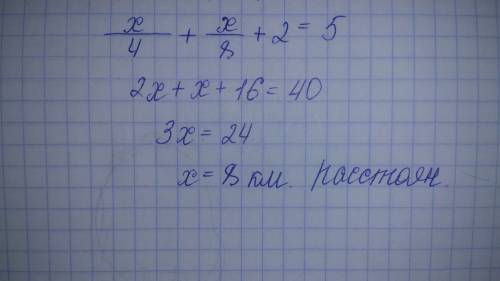 x/4 + x/8 + 2 = 5
2x + x + 16 = 40
3x = 24
x = 8 км. Расстоян.